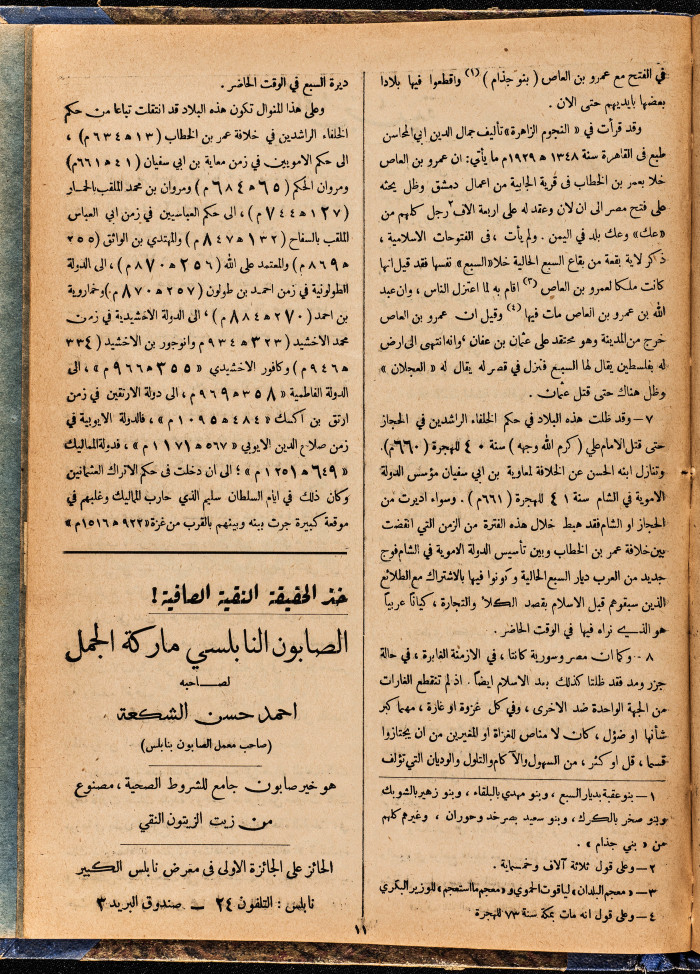 في الفتح مع عمرو بن العاص ( بنو جذام ) (١) واقطعوا فيها بلادا
بعضها بايديهم حتى الان .
وقد قرأت في « النجوم الزاهرة » تأليف جمال الدين ابي المحاسن
طبع فى القاهرة سنة ١٣٤٨ ه ١٩٢٩م ما يأتي: ان عمرو بن العاص
خلا بعمر بن الخطاب فى قرية الجابية من اعمال دمشق وظل يحثه
على فتح مصر الى ان لان وعقد له على اربعة الاف٢ رجل كلهم من
« عك » وعك بلد في اليمن . ولم يأت ، فى الفتوحات الاسلامية ،
ذكر لاية بقعة من بقاع السبع الحالية خلا «السبع» نفسها فقد قيل انها
كانت ملكا لعمرو بن العاص (٣) اقام به لما اعتزل الناس ، وان عبد
الله بن عمرو بن العاص مات فيها (٤) وقيل ان عمرو بن العاص
خرج من المدينة وهو محتقد على عثمان بن عفان ، وانه انتهى الى ارض
له بفلسطين يقال لها السبع فنزل في قصر له يقال له « العجلان »
وظل هناك حتى قتل عثمان .
٧ – وقد ظلت هذه البلاد في حكم الخلفاء الراشدين في الحجاز
حتى قتل الامام علي ( كرم الله وجهه ) سنة ٤٠ للهجرة ( ٦٦٠م).
وتنازل ابنه الحسن عن الخلافة لمعاوية بن ابي سفيان مؤسس الدولة
الاموية في الشام سنة ٤١ للهجرة ( ٦٦١م ) . وسواء اديرت من
الحجاز او الشام فقد هبط خلال هذه الفترة من الزمن التي انقضت
بين خلافة عمر بن الخطاب وبين تأسيس الدولة الاموية في الشام فوج
جديد من العرب ديار السبع الحالية وكونوا فيها بالاشتراك مع الطلائع
الذين سبقوهم قبل الاسلام بقصد الكلأ والتجارة ، كياناً عربياً
هو الذي نراه فيها في الوقت الحاضر .
٨ – وكما ان مصر وسورية كانتا ، في الازمنة الغابرة ، في حالة
جزر ومد فقد ظلتا كذلك بعد الاسلام ايضاً . اذ لم تنقطع الغارات
من الجهة الواحدة ضد الاخرى ، وفي كل غزوة او غارة ، مهما كبر
شأنها او ضؤل ، كان لا مناص للغزاة او المغيرين من ان يجتازوا
قسما ، قل او كثر ، من السهول والآكام والتلول والوديان التي تؤلف
١ – بنو عقبة بديار السبع ، وبنو مهدي بالبلقاء ، وبنو زهير بالشوبك
وبنو صخر بالكرك ، وبنو سعيد بصرخد وحوران ، وغيرهم كلهم
من « بني جذام » .
٢ – وعلى قول ثلاثة آلاف وخمسماية .
٣ – « معجم البلدان » لياقوت الحموي و « معجم ما استعجم » للوزير البكري
٤ – وعلى قول انه مات بمكة سنة ٧٣ للهجرة
ديرة السبع في الوقت الحاضر .
وعلى هذا المنوال تكون هذه البلاد قد انتقلت تباعا من حكم
الخلفاء الراشدين في خلافة عمر بن الخطاب ( ١٣ ه ٦٣٤م ) ،
الى حكم الامويين في زمن معاية بن ابي سفيان ( ٤١ ه ٦٦١م)
ومروان الحكم ( ٦٥ ه ٦٨٤م ) ومروان بن محمد الملقب بالحمار
( ١٢٧ ه ٧٤٤م ) ، الى حكم العباسيين في زمن ابي العباس
الملقب بالسفاح ( ١٣٢ ه ٨٤٧م ) والمهتدي بن الواثق ( ٢٥٥
ه ٨٦٩م ) والمعتمد على الله ( ٢٥٦ ه ٨٧٠م ) ، الى الدولة
الطولونية في زمن احمد بن طولون ( ٢٥٧ ه ٨٧٠م ) وخماروية
بن احمد ( ٢٧٠ ه ٨٨٤م ) ، الى الدولة الاخشيدية في زمن
محمد الاخشيد ( ٣٢٣ ه ٩٣٤م وانوجور بن الاخشيد ( ٣٣٤
ه ٩٤٦م ) وكافور الاخشيدي « ٣٥٥ ه ٩٦٦م » ، الى
الدولة الفاطمية « ٣٥٨ ه ٩٦٩م ، الى دولة الارتقين في زمن
ارتق بن اكسك « ٤٨٤ ه ١٠٩٥م » ، فالدولة الايوبية في
زمن صلاح الدين الايوبي « ٥٦٧ ه ١١٧١م » ، فدولة المماليك
« ٦٤٩ ه ١٢٥١م » ؛ الى ان دخلت فى حكم الاتراك العثمانين
وكان ذلك في ايام السلطان سليم الذي حارب المماليك وغلبهم في
موقعة كبيرة جرت بينه وبينهم بالقرب من غزة « ٩٢٢ ه ١٥١٦م »
خذ الحقيقة النقية الصافية !
الصابون النابلسي ماركة الجمل
لصاحبه
احمد حسن الشكعة
(صاحب معمل الصابون بنابلس)
هو خير صابون جامع للشروط الصحية ، مصنوع
من زيت الزيتون النقي
الحائز على الجائزة الاولى فى معرض نابلس الكبير
نابلس : التلفون ٢٤ – صندوق البريد ٣
١١